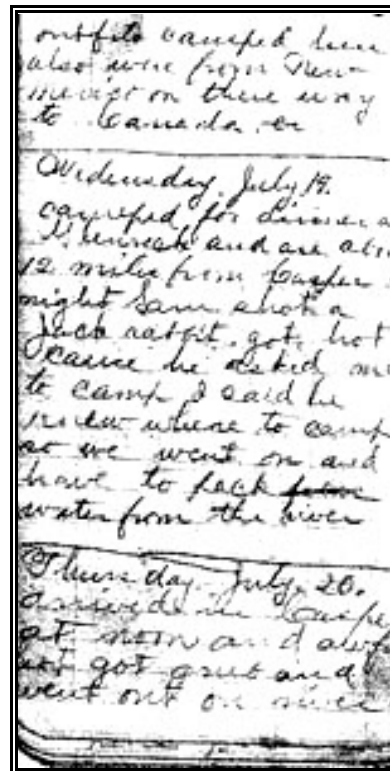 outfits camped here
also were from New
mexico on there way
to Canada. er
Wednesday. July 19.
camped for dinner a
and are abo
12 miles from Casper
night Sam shot a
Jack rabbit. got hot
cause he asked me
to camp I said he
knew where to camp
so we went on and
have to pack
water from the river
Thursday. July. 20.
arrived in Caspe
at noon and awf
hot got grub and
went out on river